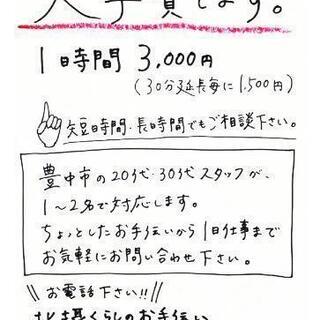 人手貸します。
1時間 3,000円
(30分延長毎に1,500円)
短時間・長時間でもご相談下さい。
豊中市の20代・30代スタッフが、
1～2名で対応します。
ちょっとしたお手伝いから1日仕事まで
お気軽にお問い合わせ下さい。
\\ お電話下さい!! //
北摂くらしのお手伝い